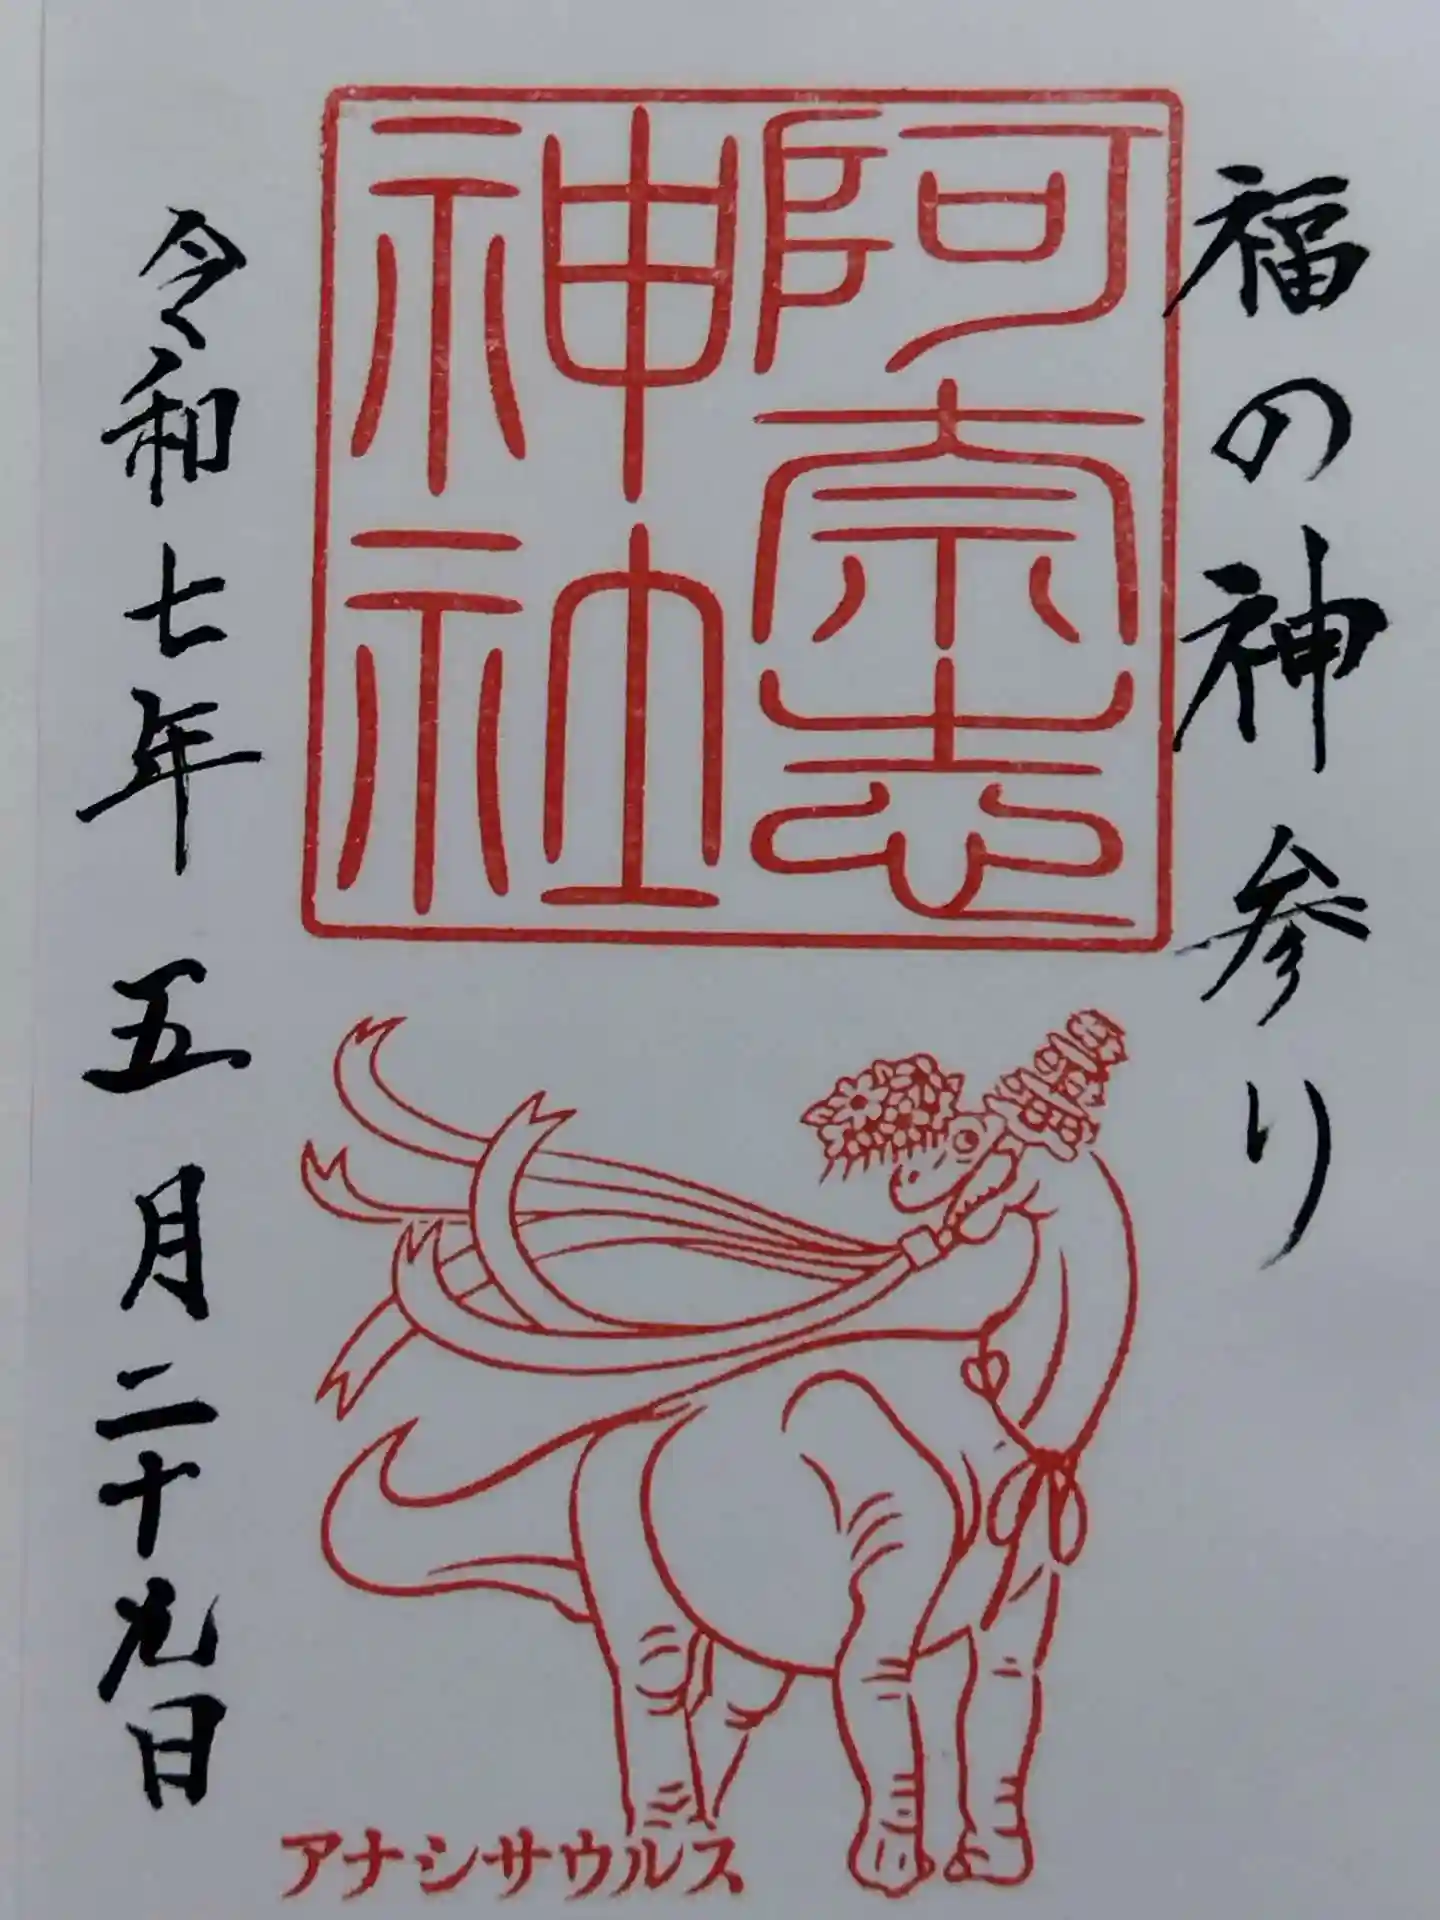 福の神参り
阿奈志
神社
令和七年五月二十九日
アナシサウルス